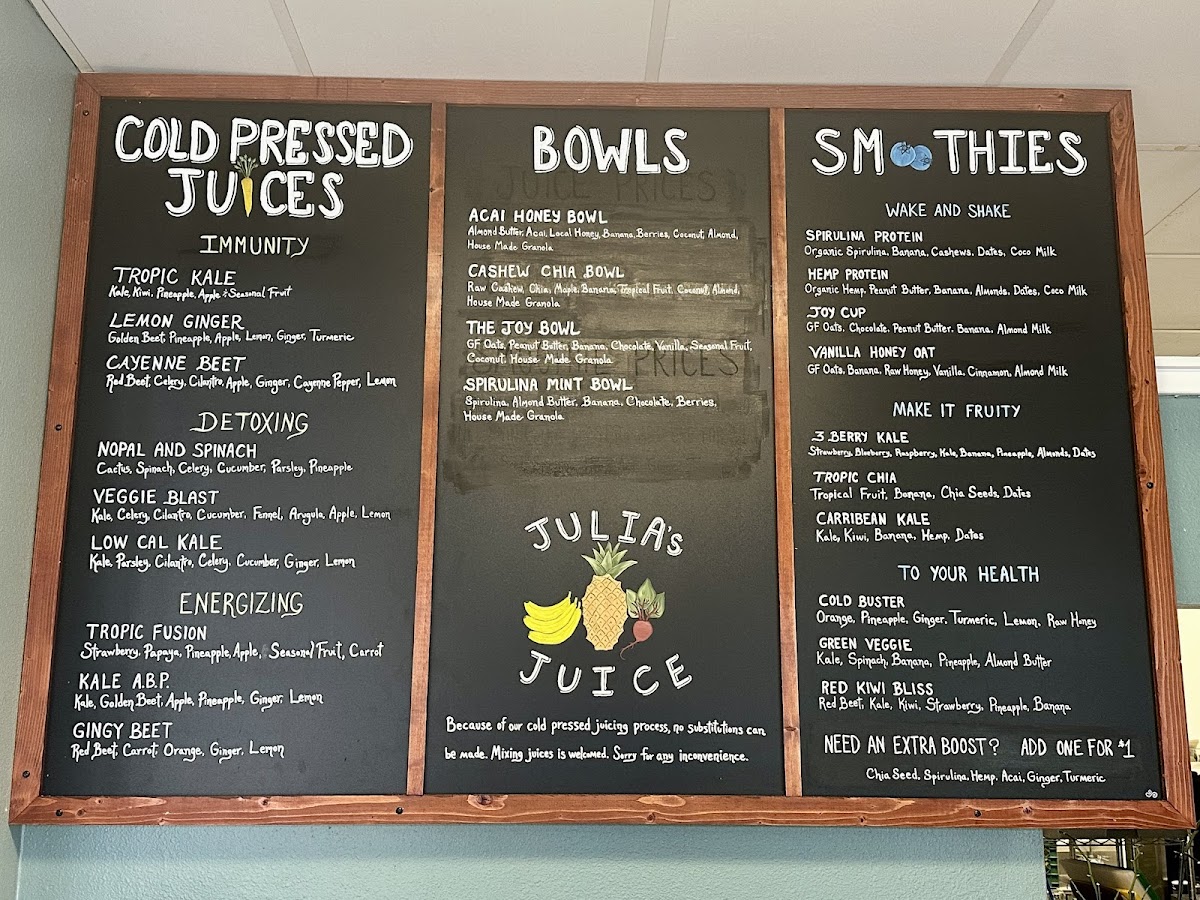 COLD PRESSED
JUICES
IMMUNITY
TROPIC KALE
Kale, Kiwi, Pineapple, Apple + Seasonal Fruit
LEMON GINGER
Golden Beet, Pineapple, Apple, Lemon, Ginger, Turmeric
CAYENNE BEET
Red Beet, Celery, Cilantro, Apple, Ginger, Cayenne Pepper, Lemon
DETOXING
NOPAL AND SPINACH
Cactus, Spinach, Celery, Cucumber, Parsley, Pineapple
VEGGIE BLAST
Kale, Celery, Cilantro, Cucumber, Fennel, Arugula, Apple, Lemon
LOW CAL KALE
Kale, Parsley, Cilantro, Celery, Cucumber, Ginger, Lemon
ENERGIZING
TROPIC FUSION
Strawberry, Papaya, Pineapple, Apple, Seasonal Fruit, Carrot
KALE A.B.P.
Kale, Golden Beet, Apple, Pineapple, Ginger, Lemon
GINGY BEET
Red Beet, Carrot, Orange, Ginger, Lemon
BOWLS
JUICE PRICES
ACAI HONEY BOWL
Almond Butter, Acai, Local Honey, Banana, Berries, Coconut, Almond,
House Made Granola
CASHEW CHIA BOWL
Raw Cashew, Chia, Maple, Banana, Tropical Fruit, Coconut, Almond,
House Made Granola
THE JOY BOWL
GF Oats, Peanut Butter, Banana, Chocolate, Vanilla, Seasonal Fruit,
Coconut, House Made Granola
PRICES
SPIRULINA MINT BOWL
Spirulina, Almond Butter, Banana, Chocolate, Berries,
House Made Granola
JULIA'S
JUICE
Because of our cold pressed juicing process, no substitutions can
be made. Mixing juices is welcomed. Sorry for any inconvenience.
SMOOTHIES
WAKE AND SHAKE
SPIRULINA PROTEIN
Organic Spirulina, Banana, Cashews, Dates, Coco Milk
HEMP PROTEIN
Organic Hemp, Peanut Butter, Banana, Almonds, Dates, Coco Milk
JOY CUP
GF Oats, Chocolate, Peanut Butter, Banana, Almond Milk
VANILLA HONEY OAT
GF Oats, Banana, Raw Honey, Vanilla, Cinnamon, Almond Milk
MAKE IT FRUITY
3 BERRY KALE
Strawberry, Blueberry, Raspberry, Kale, Banana, Pineapple, Almonds, Dates
TROPIC CHIA
Tropical Fruit, Banana, Chia Seeds, Dates
CARRIBEAN KALE
Kale, Kiwi, Banana, Hemp, Dates
TO YOUR HEALTH
COLD BUSTER
Orange, Pineapple, Ginger, Turmeric, Lemon, Raw Honey
GREEN VEGGIE
Kale, Spinach, Banana, Pineapple, Almond Butter
RED KIWI BLISS
Red Beet, Kale, Kiwi, Strawberry, Pineapple, Banana
NEED AN EXTRA BOOST? ADD ONE FOR $1
Chia Seed, Spirulina, Hemp, Acai, Ginger, Turmeric